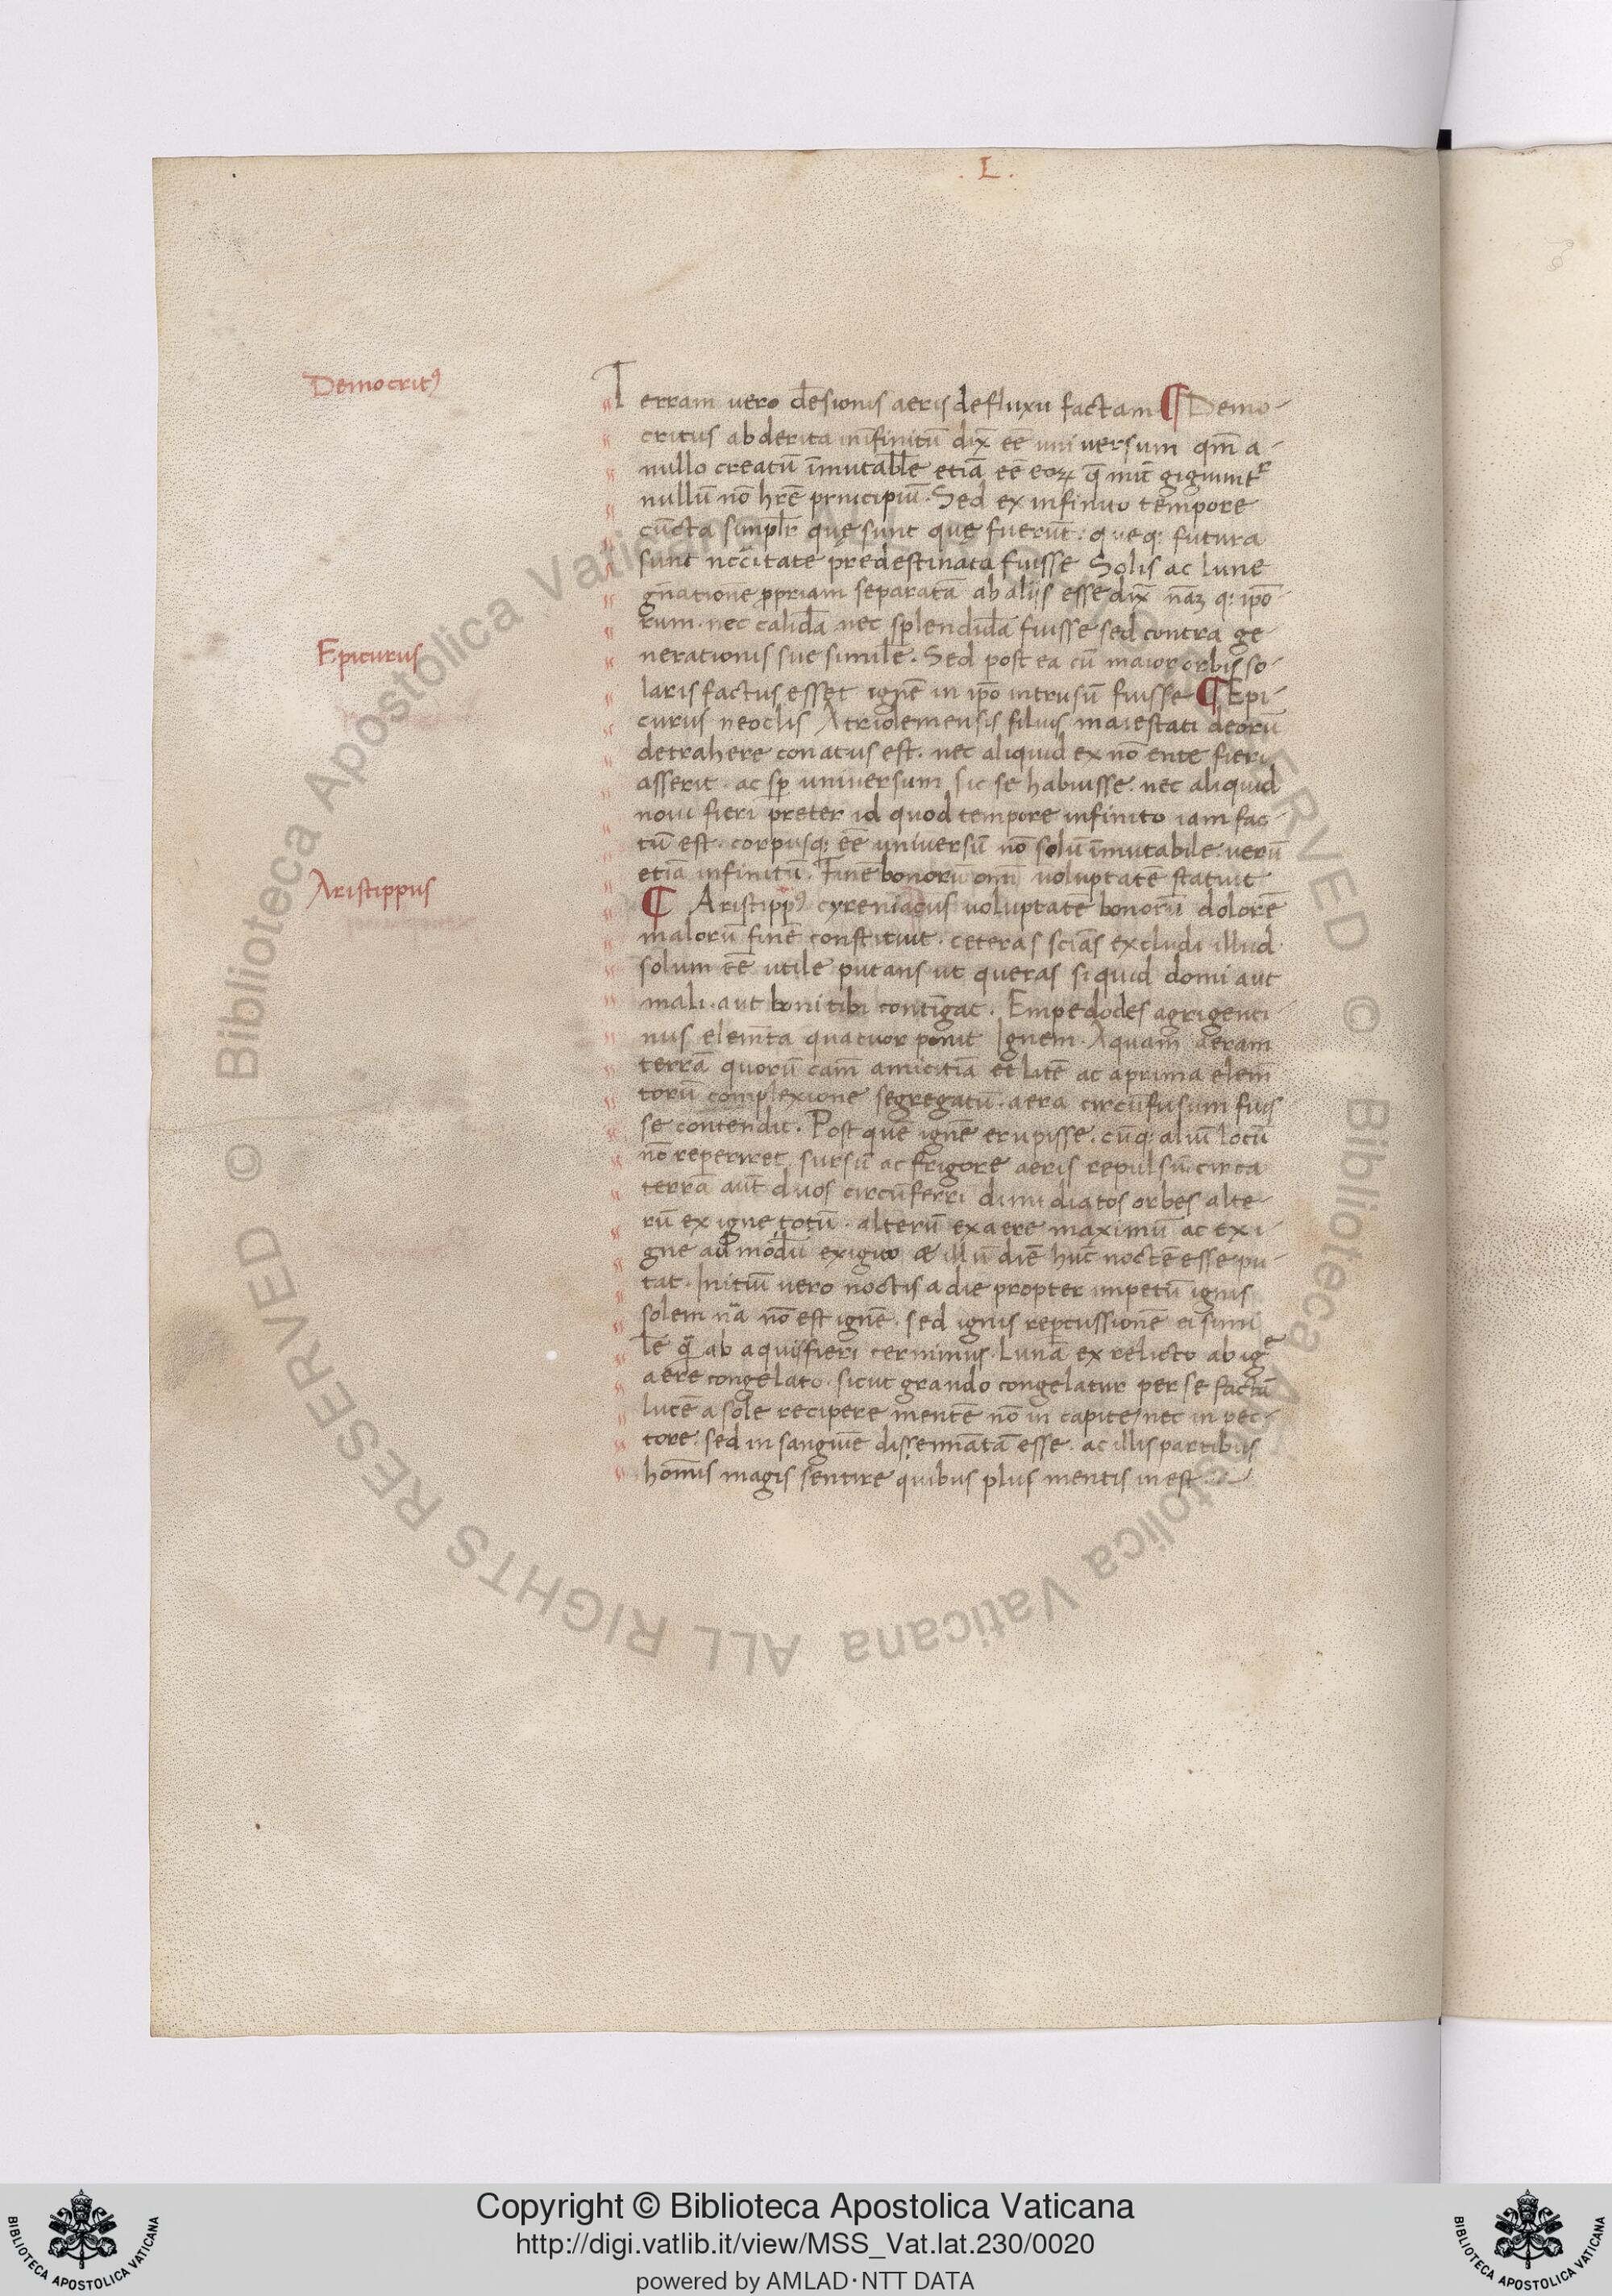 .L.
Democritꝰ
Terram uero de͞sionis aeris defluxu factam ¶ Demo-
critus abderita ĩnfinitũ dix̃ eẽ uniuersum qm̃ a-
nullo creatũ ĩmutabl̃e etiã eẽ eoꝝ q̃ nũc gignunt᷑
nullũ nõ hrẽ principiũ. Sed ex infinito tempore
cũcta simpl̃r quę sunt quę fuerũt. queq; futura
sunt nc̃citate predestinata fuisse Solis ac lune
gñationẽ ꝓpriam separatã ab alijs esse dix̃ nãꝫ q; ip̃o-
rum. nec calidã nec splendidã fuisse sed contra ge-
nerationis sue similẽ. Sed post ea cũ maior orbis so-
Epicurus
laris factus esset ignẽ in ip̃o intrusũ fuisse ¶ Epi-
curus neoclis Atriolemensis filius maiestati deorũ
detrahere conatus est. nec aliquid ex nõ ente fieri
asserit. ac sp̃ uniuersum sic se habuisse. nec aliquid
noui fieri preter id quod tempore infinito iam fac-
tũ est. corpusq; eẽ uniuersũ nõ solũ ĩmutabile. uerũ
etiã infinitũ. Finẽ bonorũ oĩm uoluptatẽ statuit
Aristippus
¶ Aristippꝰ cyreniacus uoluptatẽ bonorũ dolorẽ
malorũ finẽ constituit. ceteras sciãs excludi illud
solum eẽ utile putans ut queras si quid domi aut
mali. aut boni tibi contĩgat. Empedocles agrigenti-
nus elemẽta quatuor ponit Ignem. Aquam aeram
terrã quorũ cam̃ amicitiã et litẽ ac a prima elem̃
torũ complexione segregatũ. aera circũfusum fuis
se contendit. Post quẽ ignẽ erupisse. cũq; aliũ locũ
nõ reperiret sursũ ac frigore aeris repulsũ. circa
terrã aũt duos circũferri dimidiatos orbes alte-
rũ ex igne totũ. alterũ ex aere maximũ ac ex i-
gne admodũ exiguo æ illũ diẽ hũc noctẽ esse pu-
tat. Initiũ uero noctis a die propter impetũ ignis
solem nã nõ est ignẽ. sed ignis reꝑcussionẽ ei simi
lẽ q̃ ab aquis fieri cernimus. Lunã ex relicto ab igẽ
aere congelato. sicut grando congelatur per se factũ
lucẽ a sole recipere mentẽ nõ in capite/nec in pec-
tore. sed in sanguĩe dissemĩatã esse. ac illis partibus
homĩs magis sentire quibus plus mentis inest
Copyright © Biblioteca Apostolica Vaticana
http://digi.vatlib.it/view/MSS_Vat.lat.230/0020
powered by AMLAD·NTT DATA